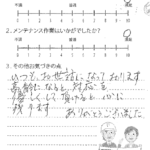 不満 普通 満足
0 1 2 3 4 5 6 7 8 9 10
2、メンテナンス作業はいかがでしたか?
不満 普通 満足
0 1 2 3 4 5 6 7 8 9 10
3、その他お気づきの点
いつも、お世話になっております
高齢になると、対応を
優しくして頂けると心に
残ります
ありがとうございました